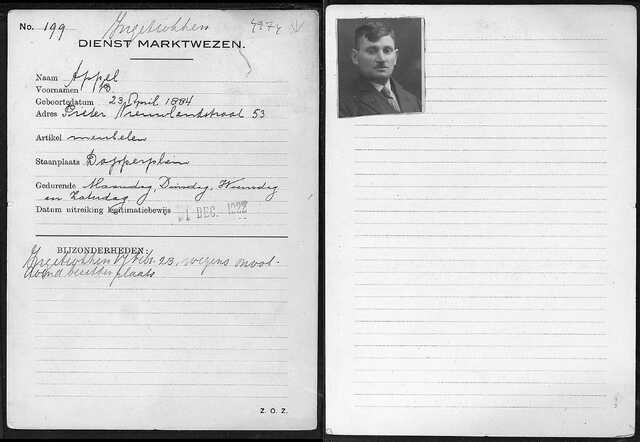 No. 199 Ingetrokken
DIENST MARKTWEZEN.
Naam Appel
Voornamen B.
Geboortedatum 23 April 1884
Adres Pieter Nieuwlandstraat 53
Artikel meubelen
Staanplaats Dapperplein
Gedurende Maandag, Dinsdag, Woensdag
en Zaterdag
Datum uitreiking legitimatiebewijs 1 DEC. 1922
BIJZONDERHEDEN:
Ingetrokken 17 Febr. 23, wegens onvol-
doend bezetten plaats
Z. O. Z.